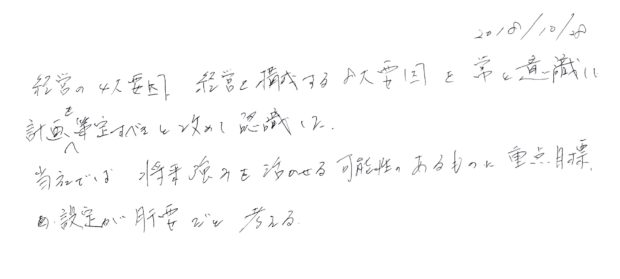 2018/10/28
経営の4大要因、経営を構成する8大要因を常に意識し
計画を策定すべきと改めて認識した。
当社では将来強みを活かせる可能性のあるものに重点目標
の設定が肝要だと考える。